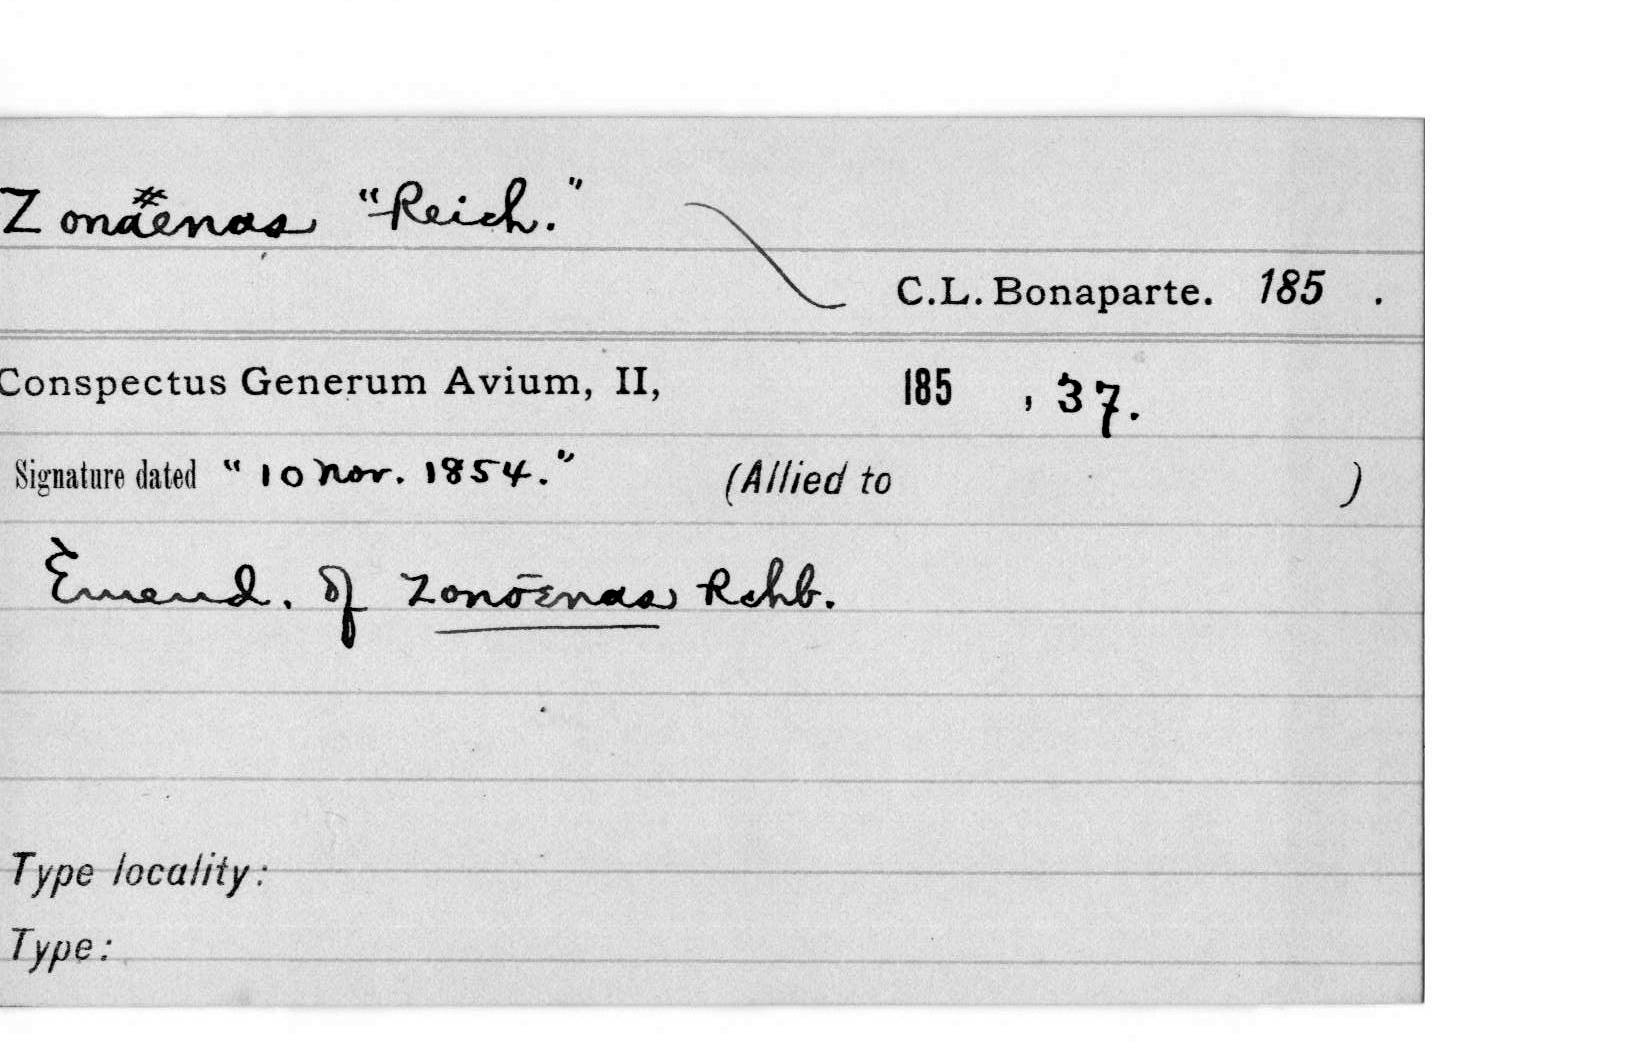 Zonäenas "Reich."
C.L. Bonaparte. 185 .
Conspectus Generum Avium, II, 185 , 37.
Signature dated "10 Nov. 1854." (Allied to )
Emend. of Zonoenas Rchb.
Type locality:
Type: